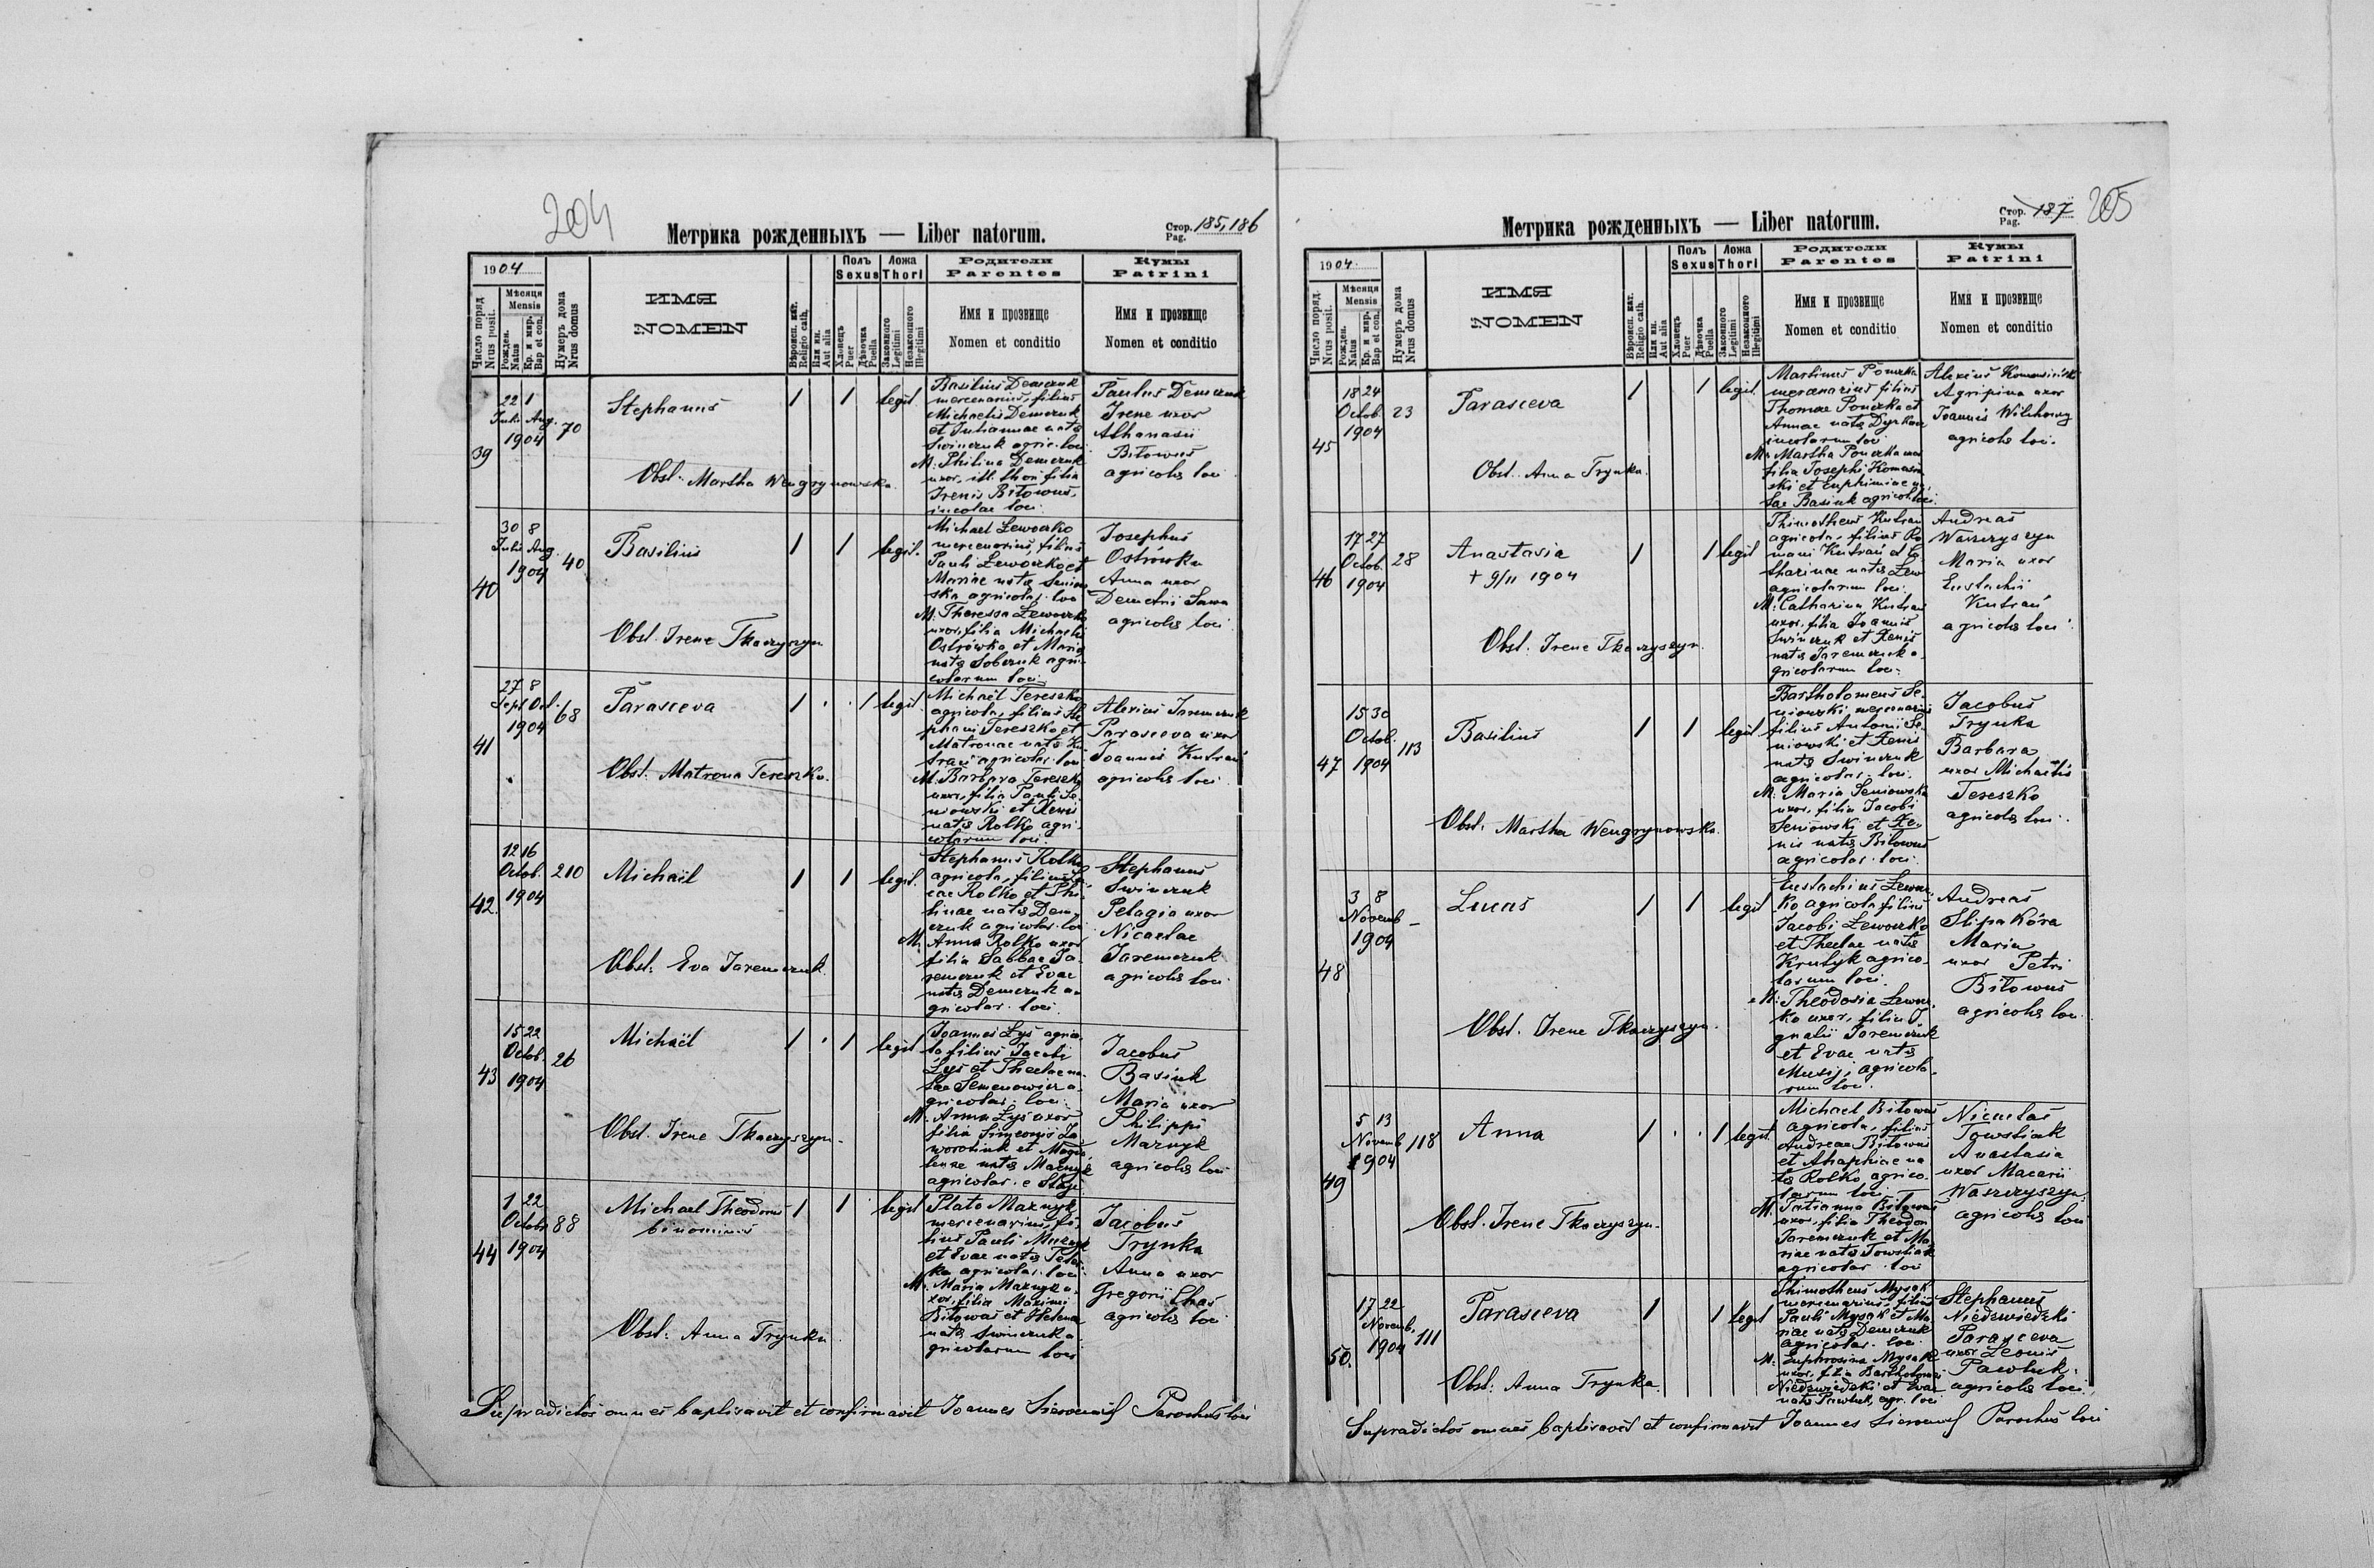 204
Метрика рожденныхъ — Liber natorum.
Стор. Pag. 185, 186
1904
Число поряд. Nrus posit.
Мѣсяця Mensis
Рожден. Natus
Кр. и мѵр. Bap et con.
Нумеръ дома Nrus domus
ИМЯ
NOMEN
Вѣроисп. кат. Religio cath.
Или ин. Aut alia
Полъ Sexus
Хлопецъ Puer
Дѣвочка Puella
Ложа Thori
Законного Legitimi
Незаконного Illegitimi
Родители
Parentes
Имя и прозвище
Nomen et conditio
Кумы
Patrini
Имя и прозвище
Nomen et conditio
39
22 1
Julii Aug.
1904
70
Stephanus
1 1 legit.
Obst. Martha Wengrynowska
Basilius Demczuk
mercenarius, filius
Michaelis Demczuk
et Julianae nata
Swinczuk agric. loci
M: Philina Demczuk
uxor, ill. thori filia
Irenis Bitowus,
incolae loci.
Paulus Demczuk
Irene uxor
Athanasii
Bitowus
agricolis loci
40
30 8
Julii Aug.
1904
40
Basilius
1 1 legit.
Obst. Irene Tkaczyszyn
Michael Lewoczko
mercenarius, filius
Pauli Lewoczko et
Mariae nata
agricolar. loci
M. Theressa Lewoczko
uxor, filia Michaelis
Ostrówka et Maria
nata Sobczuk agri-
colarum loci
Josephus
Ostrówka
Anna uxor
Demetrii Sawa
agricolis loci
41
27 8
Sept Oct.
1904
68
Parasceva
1 . . 1 legit.
Obst. Matrona Tereszko.
Michaël Tereszko
agricola, filius Ste-
phani Tereszko et
Matronae nata Ku-
trań agricolar. loci
M. Barbara Tereszko
uxor, filia Pauli Se-
niowski et Xenis
nata Rolko agri-
colarum loci.
Alexius Jaremczuk
Parasceva uxor
Joannis Kutrań
agricolis loci
42.
12 16
Octob.
1904
210
Michaël
1 1 legit.
Obst. Eva Jaremczuk.
Stephanus Rolko
agricola, filius Lu-
cae Rolko et Phi-
linae nata Dem-
czuk agricolar. loci
M. Anna Rolko uxor
filia Sabbae Ja-
remczuk et Evae
nata Demczuk a-
gricolar. loci.
Stephanus
Swinczuk
Pelagia uxor
Nicaelae
Jaremczuk
agricolis loci
43
15 22
Octob.
1904
26
Michaël
1 . 1 legit
Obst. Irene Tkaczyszyn.
Joannes Lys agrico-
la filius Jacobi
Lys et Theclae na-
tae Semenowicz a-
gricolar. loci.
M. Anna Lys uxor
filia Simeonis Ja-
worotiuk et Magda-
lenae nata Maznyk
agricolar. e
Jacobus
Basiuk
Maria uxor
Philippi
Maznyk
agricolis loci
44
1 22
Octobr
1904
88
Michael Theodorus
binominis
1 1 legit
Obst. Anna Trynka
Plato Maznyk
mercenarius, fi-
lius Pauli Maznyk
et Evae nata
agricolar. loci
M. Maria Maznyk u-
xor, filia Maximi
Bitowus et Helena
nata Swinczuk a-
gricolarum loci
Jacobus
Trynka
Anna uxor
Gregorii Chas
agricolis loci
Supradictos omnes baptisavit et confirmavit Joannes Parochus loci
205
Метрика рожденныхъ — Liber natorum.
Стор. Pag. 187
1904
Число поряд. Nrus posit.
Мѣсяця Mensis
Рожден. Natus
Кр. и мѵр. Bap et con.
Нумеръ дома Nrus domus
ИМЯ
NOMEN
Вѣроисп. кат. Religio cath.
Или ин. Aut alia
Полъ Sexus
Хлопецъ Puer
Дѣвочка Puella
Ложа Thori
Законного Legitimi
Незаконного Illegitimi
Родители
Parentes
Имя и прозвище
Nomen et conditio
Кумы
Patrini
Имя и прозвище
Nomen et conditio
45
18 24
Octob.
1904
23
Parasceva
1 1 legit.
Obst. Anna Trynka.
Martinus Ponczka
mercenarius filius
Thomae Ponczka et
Annae nata
incolarum loci
M. Martha Ponczka uxor
filia Josephi
et Euphimiae na-
tae Basiuk agricol. loci.
Alexius
Agripina uxor
Joannis
agricolis loci.
46
17 27
Octob.
1904
28
Anastasia
+ 9/11 1904
1 1 legit
Obst. Irene Tkaczyszyn.
Thimotheus Kutrań
agricola, filius Ro-
mani Kutrań et Ca-
tharinae nata Lew
agricolarum loci.
M: Catharina Kutrań
uxor, filia Joannis
Swinczuk et Xenis
nata Jaremczuk a-
gricolarum loci.
Andreas
Waszczyszyn
Maria uxor
Eustachii
Kutrań
agricolis loci
47
15 30
Octob.
1904
113
Basilius
1 1 legit
Obst. Martha Wengrynowska.
Bartholomeus Se-
niowski mercenarius
filius Antonii Se-
niowski et Xenis
nata Swinczuk
agricolar. loci.
M. Maria Seniowska
uxor, filia Jacobi
Seniowski et Xe-
nis nata Bitowus
agricolar. loci.
Jacobus
Trynka
Barbara
uxor Michaelis
Tereszko
agricolis loci.
48
3 8
Novemb
1904
–
Lucas
1 1 legit
Obst. Irene Tkaczyszyn.
Eustachius Lewocz-
ko agricola filius
Jacobi Lewoczko
et Theclae nata
Krutyk agrico-
larum loci.
M: Theodosia Lewocz-
ko uxor, filia I-
gnatii Jaremczuk
et Evae nata
Musij, agricola-
rum loci.
Andreas
Slipakóra
Maria
uxor Petri
Bitowus
agricolis loci
49
5 13
Novemb
1904
118
Anna
1 . . 1 legit.
Obst. Irene Tkaczyszyn.
Michael Bitowus
agricola, filius
Andreae Bitowus
et Ahaphiae na-
ta Rolko agrico-
larum loci
M. Tatianna Bitowus
uxor, filia Theodori
Jaremczuk et Ma-
riae nata Towstiak
agricolar. loci
Nicaelas
Towstiak
Anastasia
uxor Macarii
Waszczyszyn
agricolis loci
50.
17 22
Novemb.
1904
111
Parasceva
1 1 legit
Obst: Anna Trynka.
Thimotheus Mysak
mercenarius, filius
Pauli Mysak et Ma-
riae nata Demczuk
agricolar. loci
M. Euphrosina Mysak
uxor, filia Bartholomei
Niedzwiedzki et Evae
nata Pawluk, agr. loci
Stephanus
Niedzwiedzki
Parasceva
uxor Leonis
Pawluk.
agricolis loci.
Supradictos omnes baptisavit et confirmavit Joannes Parochus loci